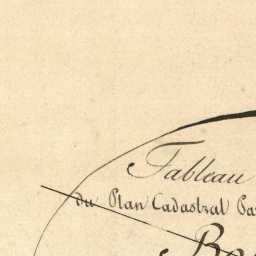 Tableau
du Plan Cadastral Pa
Bo